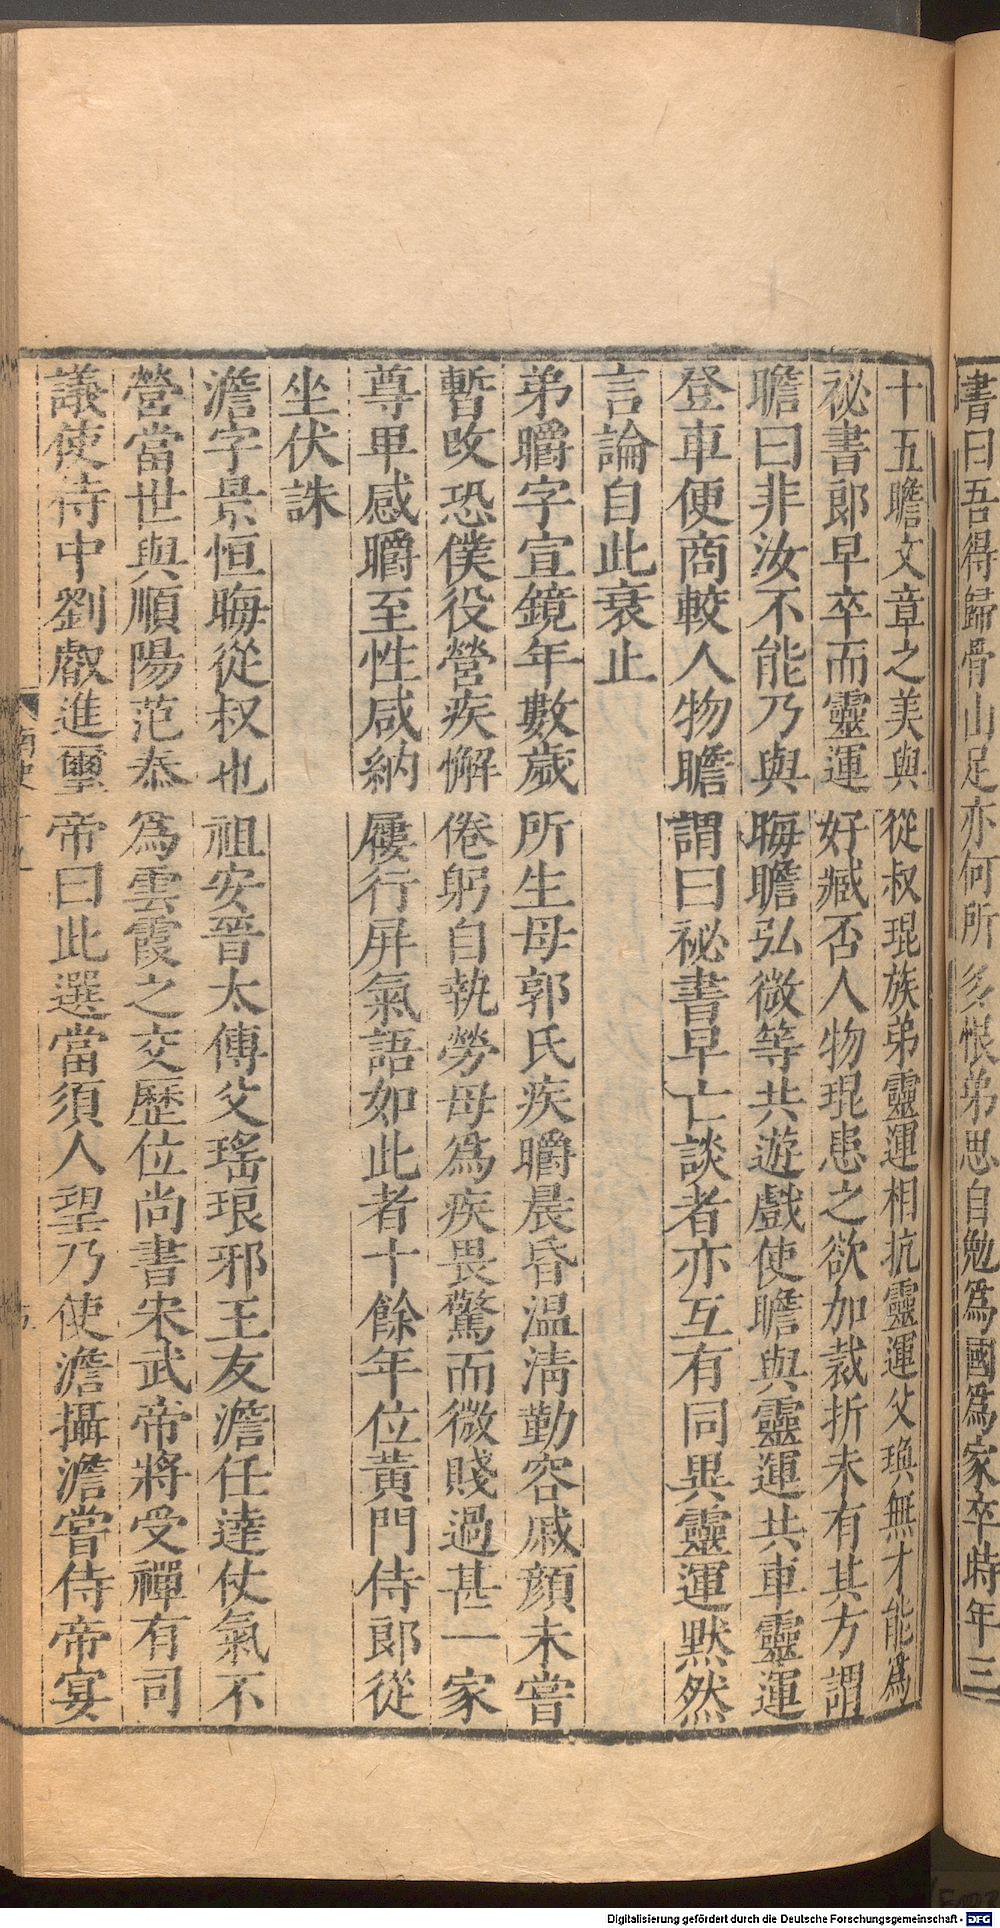 書曰吾得歸骨山足亦何所多恨弟思自勉爲國爲家卒時年三
十五瞻文章之美與從叔琨族弟靈運相抗靈運父瑍無才能爲
祕書郎早卒而靈運好臧否人物琨患之欲加裁折未有其方謂
瞻曰非汝不能乃與晦瞻弘微等共遊戲使瞻與靈運共車靈運
登車便商較人物瞻謂曰祕書早亡談者亦互有同異靈運默然
言論自此衰止
弟㬭字宣鏡年數歲所生母郭氏疾㬭晨昏温凊勤容戚顔未嘗
暫改恐僕役營疾懈倦躬自執勞母爲疾畏驚而微賤過甚一家
尊卑感㬭至性咸納屨行屏氣語如此者十餘年位黄門侍郎從
坐伏誅
澹字景恒晦從叔也祖安晉太傅父瑤琅邪王友澹任達仗氣不
營當世與順陽范泰爲雲霞之交歷位尚書宋武帝將受禪有司
議使侍中劉叡進璽帝曰此選當須人望乃使澹攝澹嘗侍帝宴
南史
Digitalisierung gefördert durch die Deutsche Forschungsgemeinschaft - DFG